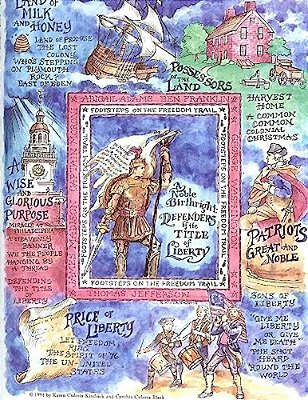 LAND OF
MILK
AND
HONEY
LAND OF PROMISE
THE LOST
COLONY
WHO'S STEPPING
ON PLYMOUTH
ROCK?
EAST OF EDEN
POSSESSORS
OF THE
LAND
HARVEST
HOME
A COMMON
COMMON
COLONIAL
CHRISTMAS
ABIGAIL ADAMS BEN FRANKLIN
FOOTSTEPS ON THE FREEDOM TRAIL
FOOTSTEPS ON THE FREEDOM TRAIL
FOOTSTEPS ON THE FREEDOM TRAIL
GEORGE WASHINGTON
A
Noble
Birthright
DEFENDERS
of the
TITLE
of
LIBERTY
FOOTSTEPS ON THE FREEDOM TRAIL
THOMAS JEFFERSON
A
WISE
AND
GLORIOUS
PURPOSE
MIRACLE AT
PHILADELPHIA
A HEAVENLY
BANNER
WE THE PEOPLE
HANGING BY
A THREAD
DEFENDING
THE TITLE
OF
LIBERTY
PATRIOTS
GREAT and
NOBLE
SONS OF
LIBERTY
"GIVE ME
LIBERTY
OR GIVE
ME DEATH"
THE SHOT
HEARD
'ROUND THE
WORLD
PRICE of
LIBERTY
LET FREEDOM
RING
THE SPIRIT OF '76
THE UN-UNITED
STATES
© 1994 by Karen Culotta Kendrick and Cynthia Culotta Black